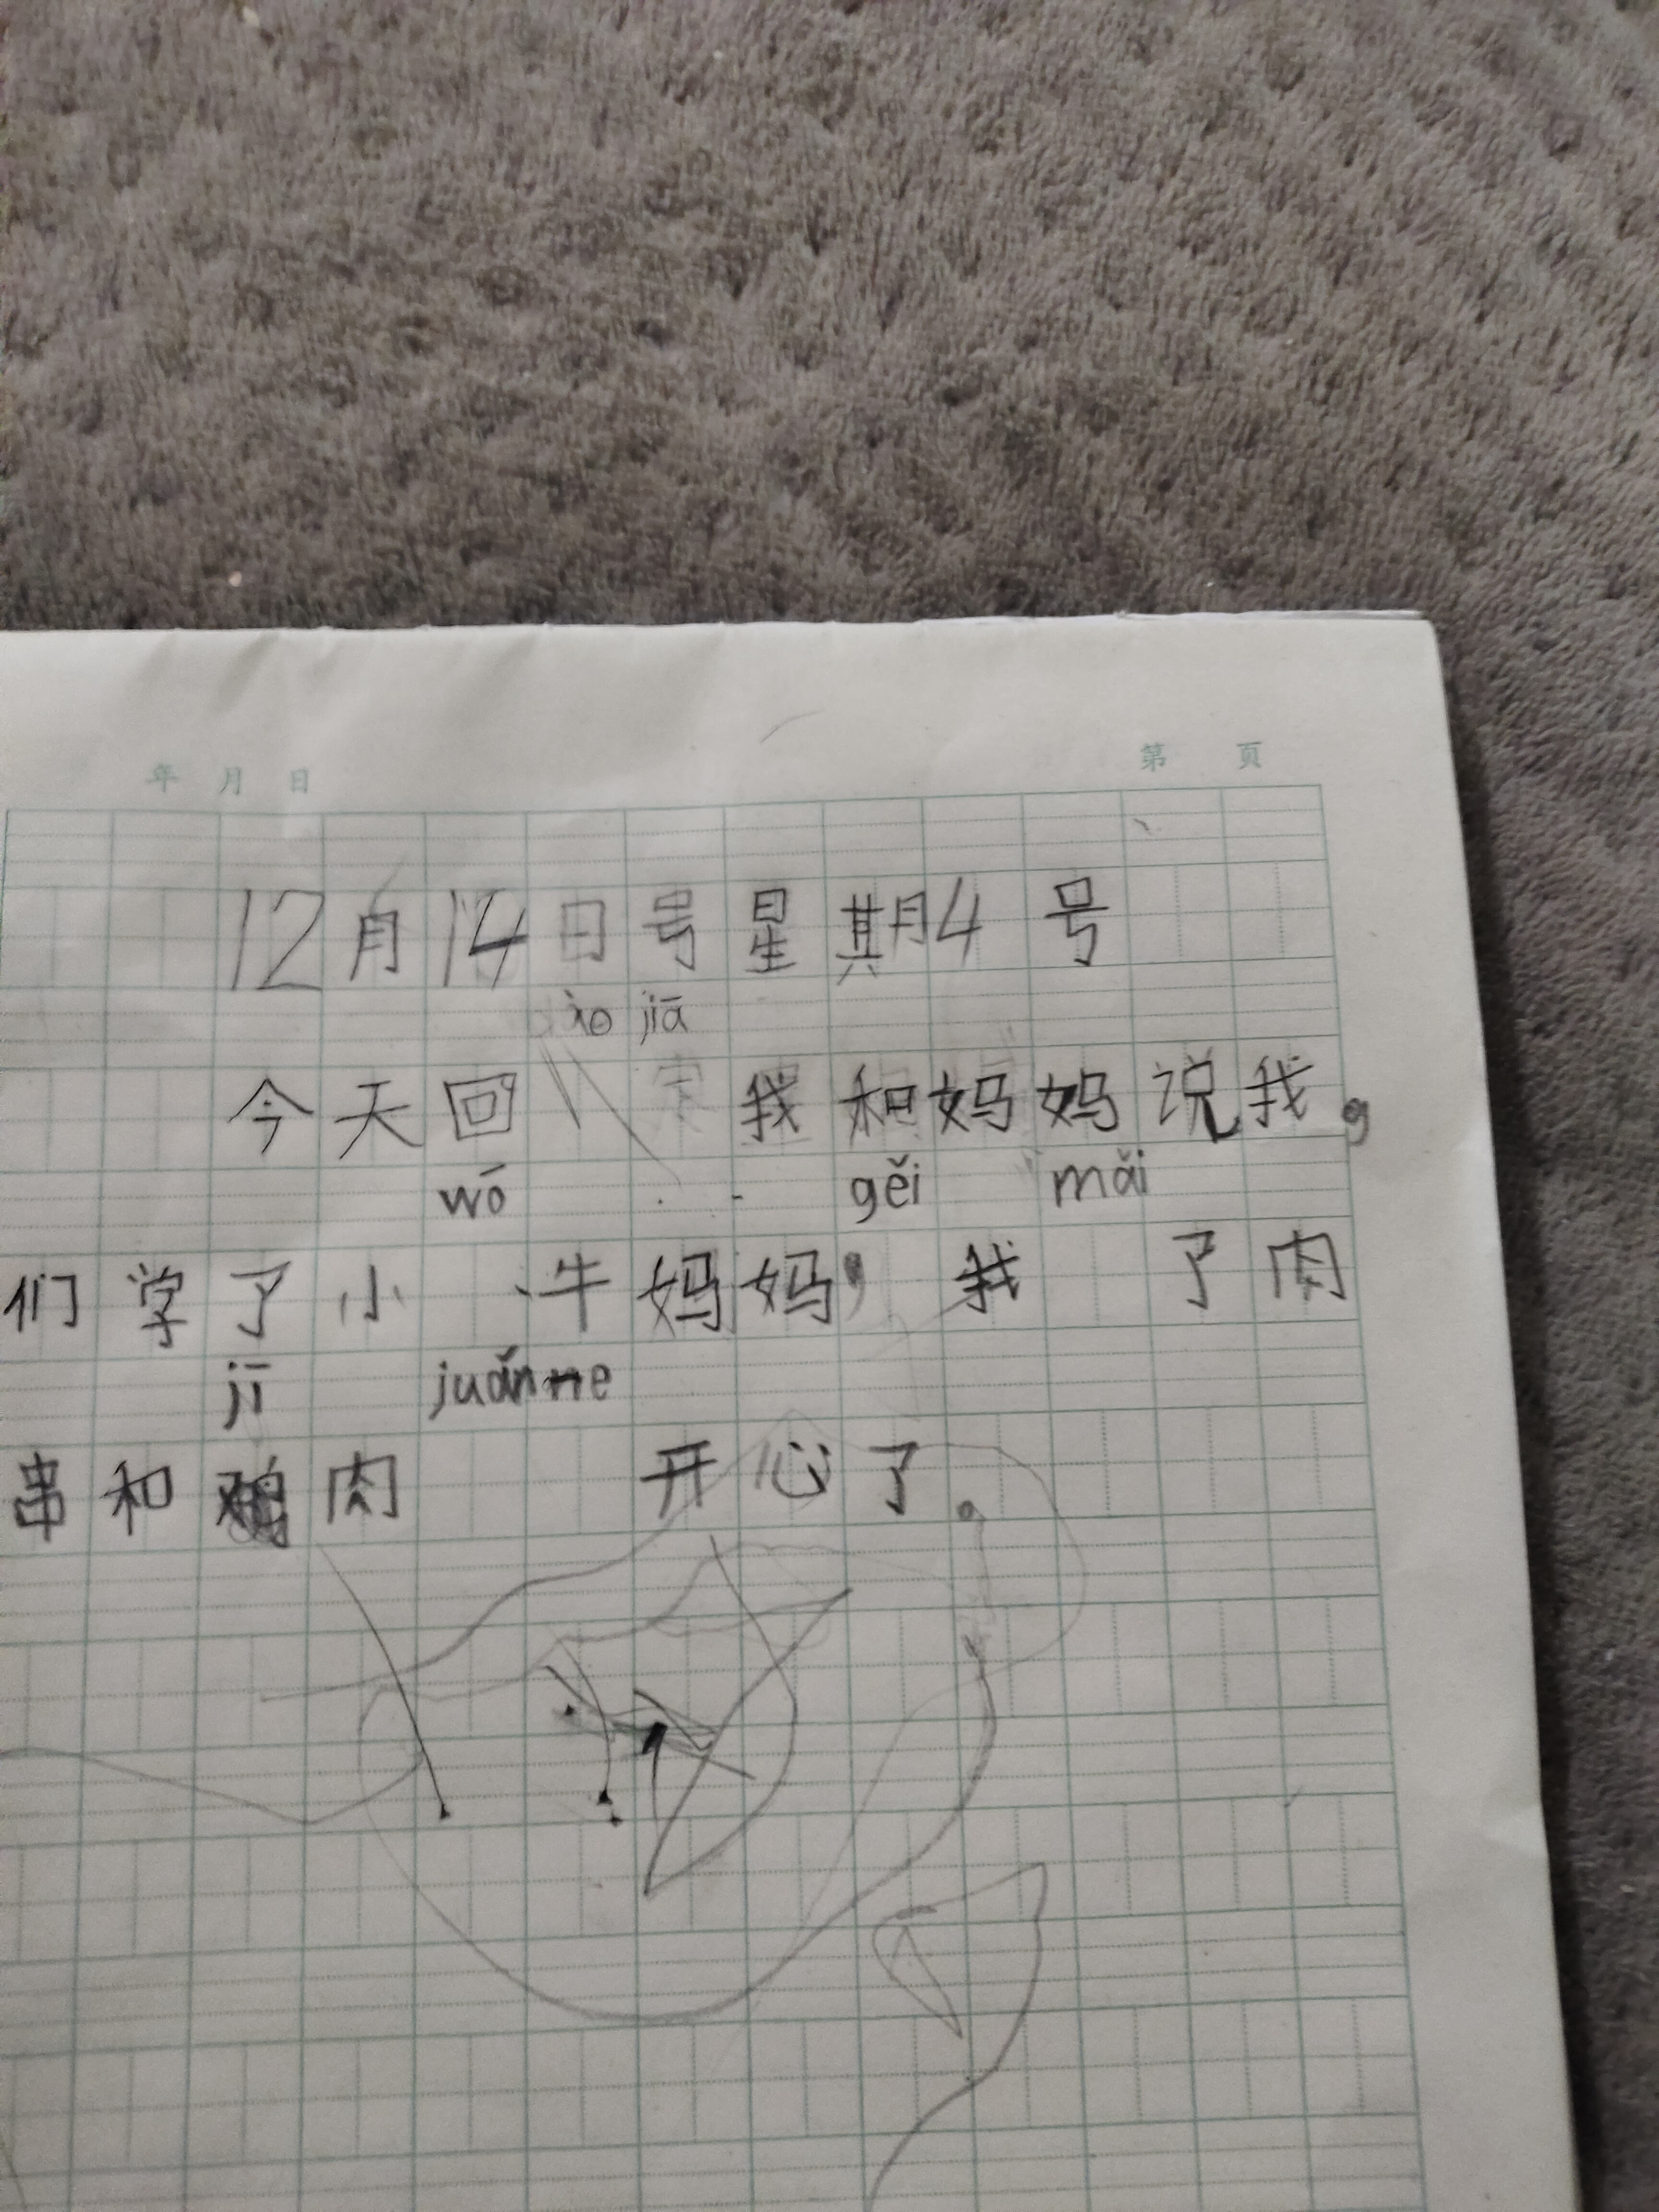 年 月 日 第 页
12月14日号星期4号
jiā
今天回 我和妈妈说我,
wō gěi mǎi
们学了小 牛妈妈, 我 了肉
jī juǎn ne
串和鸡肉 开心了。